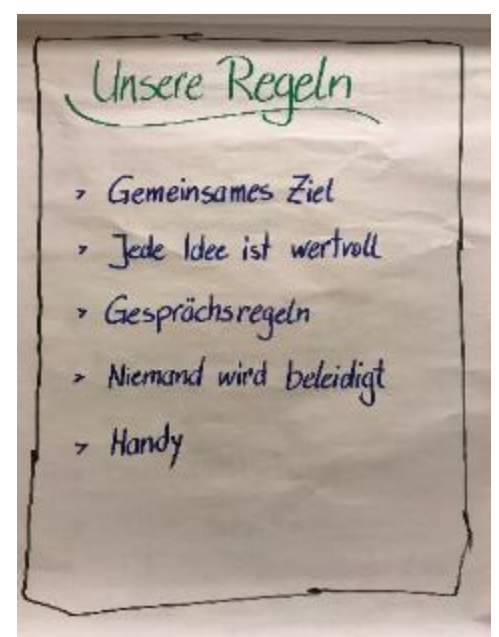 Unsere Regeln
> Gemeinsames Ziel
> Jede Idee ist wertvoll
> Gesprächsregeln
> Niemand wird beleidigt
> Handy